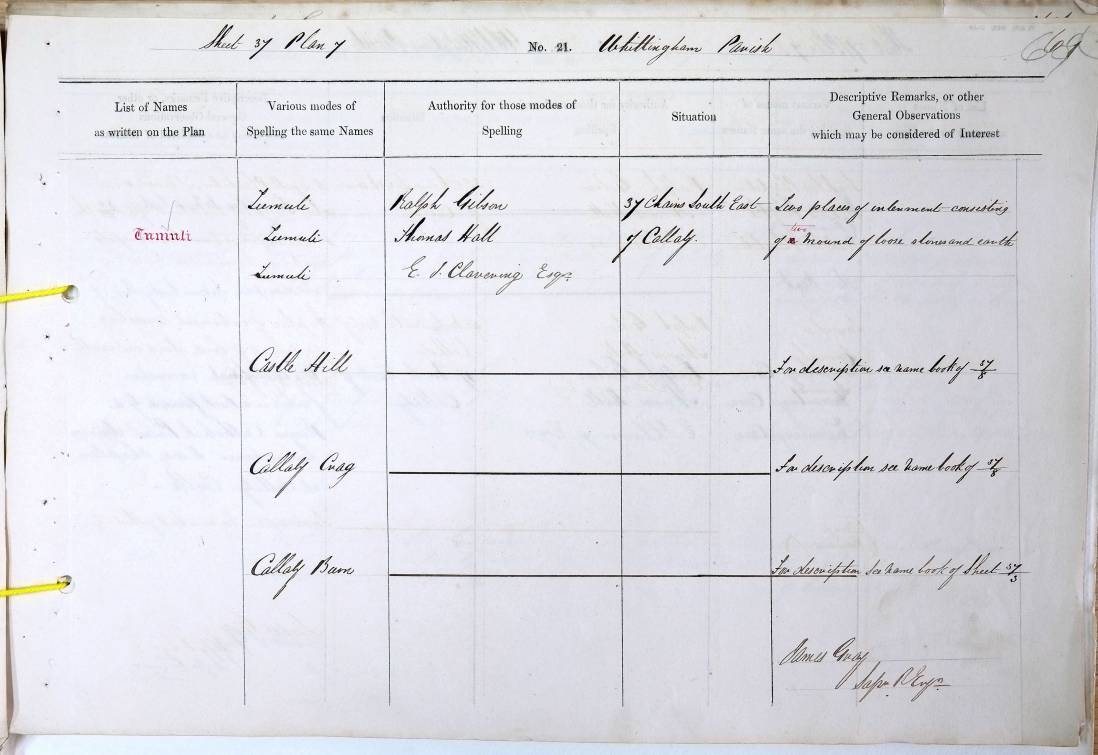 Sheet 37 Plan 7 No. 21. Whittingham Parish 69
List of Names
as written on the Plan
Various modes of
Spelling the same Names
Authority for those modes of
Spelling
Situation
Descriptive Remarks, or other
General Observations
which may be considered of Interest
Tumuli
Tumuli
Tumuli
Tumuli
Ralph Gibson
Thomas Hall
E. J. Clavering Esqr.
37 Chains South East
of Callaly.
Two places of interment consisting
two
of a mound of loose stones and earth
Castle Hill
For description see name book of 37/8
Callaly Crag
For description see name book of 37/8
Callaly Barn
For description see name book of Sheet 37/3
James Gray
Sapr. R. Engrs